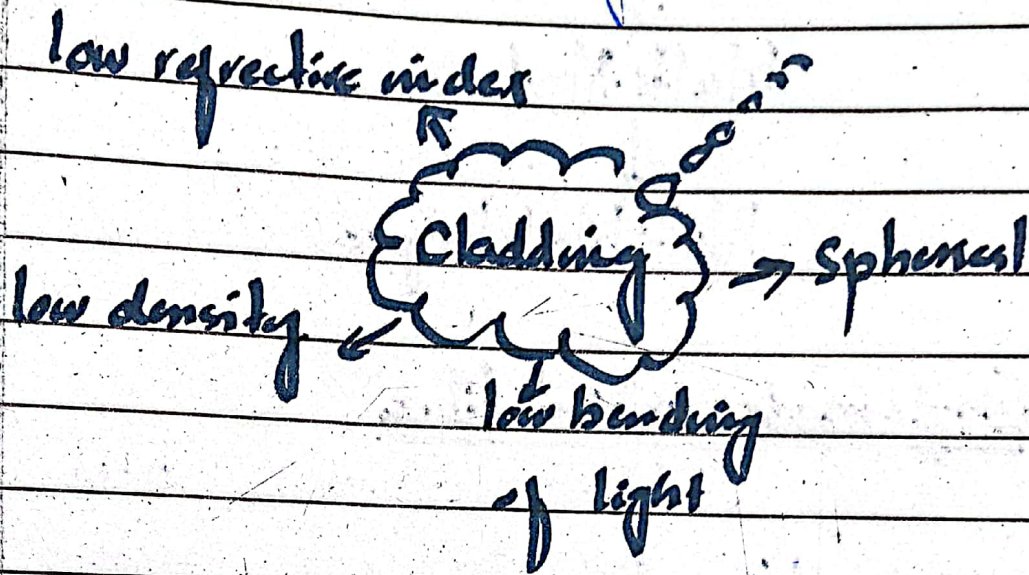 low refrective index
Cladding
Spherical
low density
low bending
of light